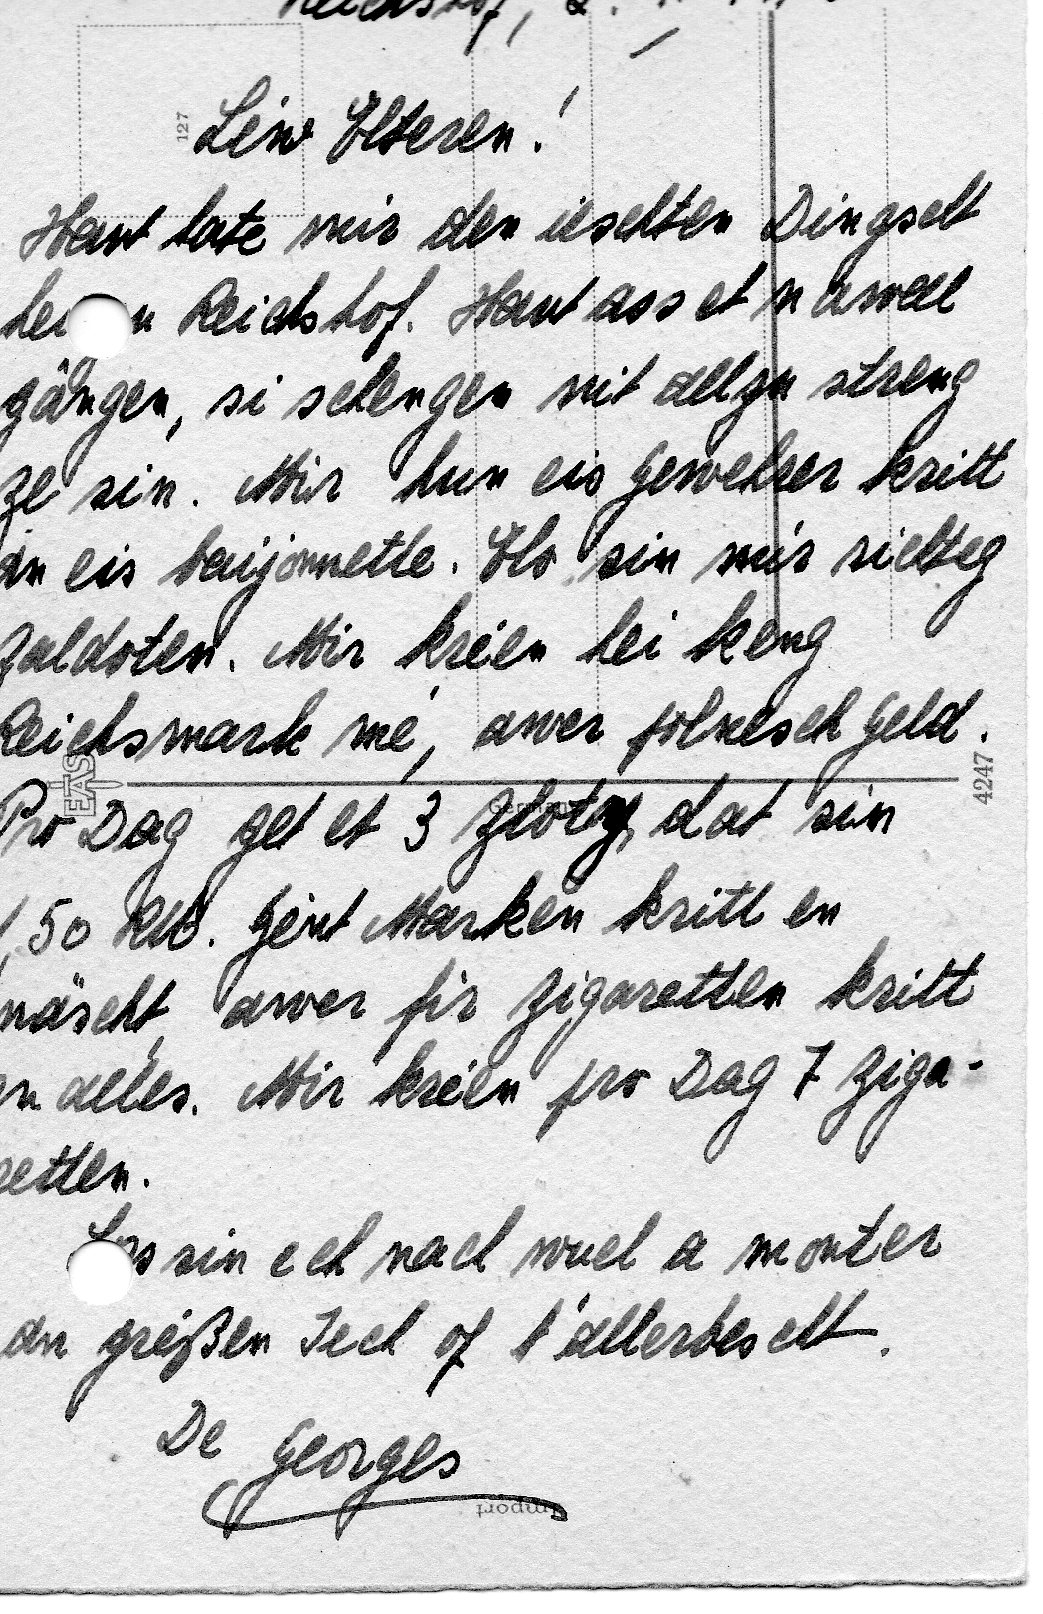 Reichshof, 2.
127
Léiw Elteren!
Haut hate mir den ieschten Dingscht
hei an Reichshof. Haut ass et nawell
gängen, si schengen nit allzu streng
ze sin. Mir hun eis Gewehrer kritt
an eis baijonnette. Elo sin mir richteg
Zaldoten. Mir kréien hei keng
Reichsmark mé, awer polnesch Geld.
EAS 4247
Germany
Pro Dag get et 3 Zloty, dat sin
1,50 RM. Gént Marken kritt en
näscht, awer fir Zigaretten kritt
en alles. Mir kréien pro Dag 7 Ziga-
retten.
Los sin ech nach wuel a monter
an gréißen Iech of t'allerbescht.
De Georges
Import